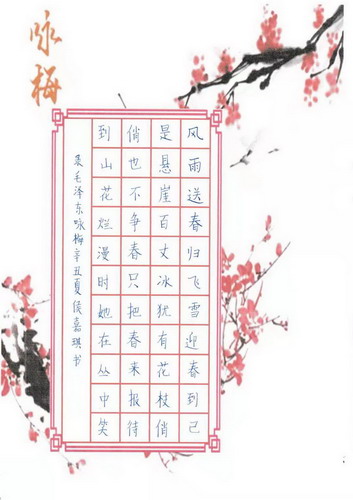 咏梅
风雨送春归飞雪迎春到己
是悬崖百丈冰犹有花枝俏
俏也不争春只把春来报待
到山花烂漫时她在丛中笑
录毛泽东咏梅辛丑夏侯嘉琪书